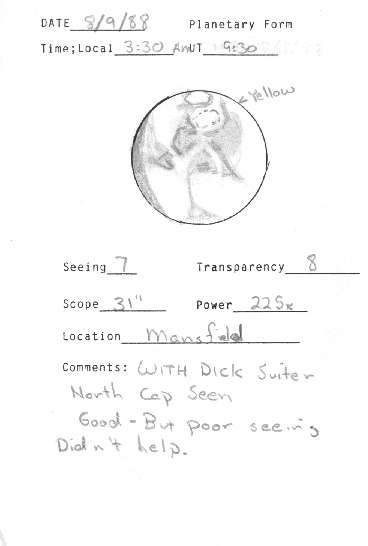 DATE 8/9/88 Planetary Form
Time;Local 3:30 AM UT 9:30
Yellow
Seeing 7 Transparency 8
Scope 31" Power 225x
Location Mansfield
Comments: WITH Dick Suiter
North Cap Seen
Good - But poor seeing
Didn't help.